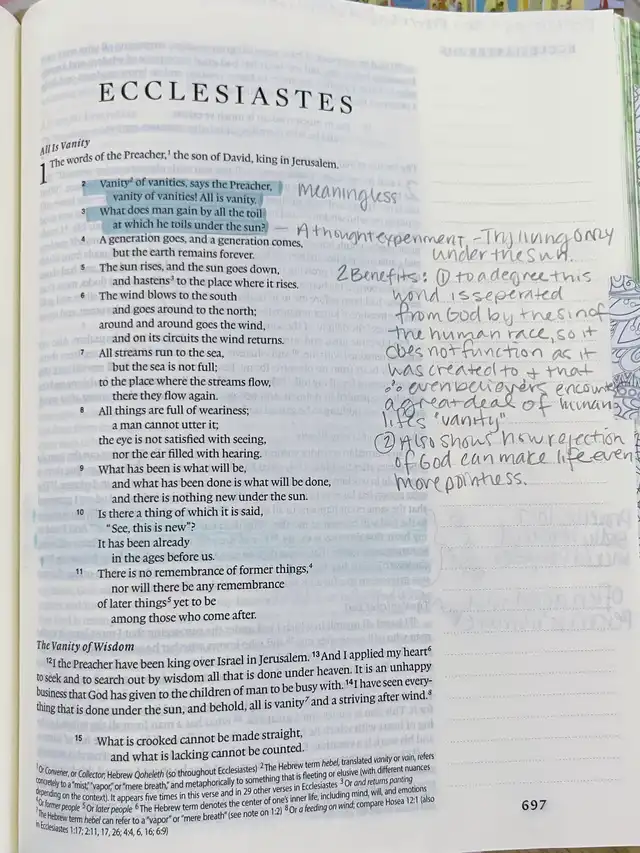 ECCLESIASTES
All Is Vanity
1 The words of the Preacher,¹ the son of David, king in Jerusalem.
2 Vanity² of vanities, says the Preacher,
vanity of vanities! All is vanity.
3 What does man gain by all the toil
at which he toils under the sun?
4 A generation goes, and a generation comes,
but the earth remains forever.
5 The sun rises, and the sun goes down,
and hastens³ to the place where it rises.
6 The wind blows to the south
and goes around to the north;
around and around goes the wind,
and on its circuits the wind returns.
7 All streams run to the sea,
but the sea is not full;
to the place where the streams flow,
there they flow again.
8 All things are full of weariness;
a man cannot utter it;
the eye is not satisfied with seeing,
nor the ear filled with hearing.
9 What has been is what will be,
and what has been done is what will be done,
and there is nothing new under the sun.
10 Is there a thing of which it is said,
"See, this is new"?
It has been already
in the ages before us.
11 There is no remembrance of former things,⁴
nor will there be any remembrance
of later things⁵ yet to be
among those who come after.
The Vanity of Wisdom
¹²I the Preacher have been king over Israel in Jerusalem. ¹³And I applied my heart⁶
to seek and to search out by wisdom all that is done under heaven. It is an unhappy
business that God has given to the children of man to be busy with. ¹⁴I have seen every-
thing that is done under the sun, and behold, all is vanity⁷ and a striving after wind.⁸
15 What is crooked cannot be made straight,
and what is lacking cannot be counted.
¹Or Convener, or Collector; Hebrew Qoheleth (so throughout Ecclesiastes) ²The Hebrew term hebel, translated vanity or vain, refers
concretely to a "mist," "vapor," or "mere breath," and metaphorically to something that is fleeting or elusive (with different nuances
depending on the context). It appears five times in this verse and in 29 other verses in Ecclesiastes ³Or and returns panting
⁴Or former people ⁵Or later people ⁶The Hebrew term denotes the center of one's inner life, including mind, will, and emotions
⁷The Hebrew term hebel can refer to a "vapor" or "mere breath" (see note on 1:2) ⁸Or a feeding on wind; compare Hosea 12:1 (also
in Ecclesiastes 1:17; 2:11, 17, 26; 4:4, 6, 16; 6:9)
Meaningless
— A thought experiment - Try living only
under the sun.
2 Benefits: ① to a degree this
world is seperated
from God by the sin of
the human race, so it
does not function as it
was created to + that
∴ even believers encounter
a great deal of human
lifes "vanity"
② Also shows how rejection
of God can make life even
more pointless.
697